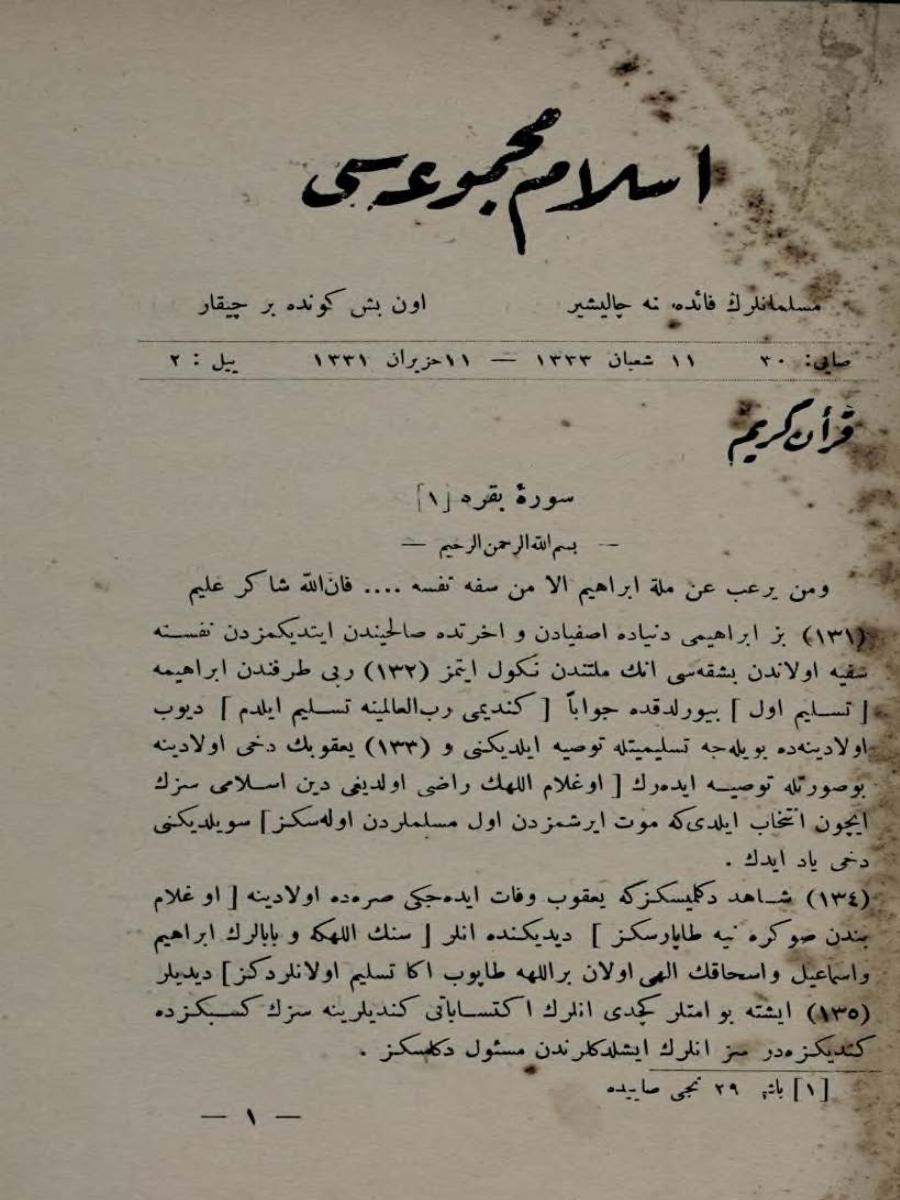 اسلام مجموعه سی
مسلمانلرڭ فائده نه چالیشیر اون بش كونده بر چیقار
صایی: ٣٠ ١١ شعبان ١٣٣٣ — ١١ حزیران ١٣٣١ ییل : ٢
قرأن كریم
سورۀ بقره [١]
— بسم الله الرحمن الرحیم —
ومن یرعب عن ملة ابراهیم الا من سفه نفسه .... فان الله شاكر علیم
(١٣١) بز ابراهیمی دنیاده اصفیادن و اخرتده صالحیندن ایتدیكمزدن نفسنه
سفیه اولاندن بشقه‌سی انك ملتندن نكول ایتمز (١٣٢) ربی طرفندن ابراهیمه
[ تسلیم اول ] بیورلدقده جواباً [ كندیمی رب العالمینه تسلیم ایلدم ] دیوب
اولادینه‌ده بویله‌جه تسلیمیتله توصیه ایلدیكنی و (١٣٣) یعقوبك دخی اولادینه
بوصورتله توصیه ایده‌رك [ اوغلام اللهك راضی اولدیغی دین اسلامی سزك
ایچون انتخاب ایلدی‌كه موت ایرشمزدن اول مسلملردن اوله‌سكز ] سویلدیكنی
دخی یاد ایدك .
(١٣٤) شاهد دكلمیسكزكه یعقوب وفات ایده‌جكی صره‌ده اولادینه [ او غلام
بندن صوكره نیه طاپارسكز ] دیدیكنده انلر [ سنك اللهكه و بابالرك ابراهیم
واسماعیل واسحاقك الهی اولان بر اللهه طاپوب اكا تسلیم اولانلردكز ] دیدیلر
(١٣٥) ایشته بو امتلر كچدی انلرك اكتساباتی كندیلرینه سزك كسبكزده
كندیكزه‌در سز انلرك ایشلدكلرندن مسئول دكلسكز .
[١] باشی ٢٩ نجی صاییده
— ١ —